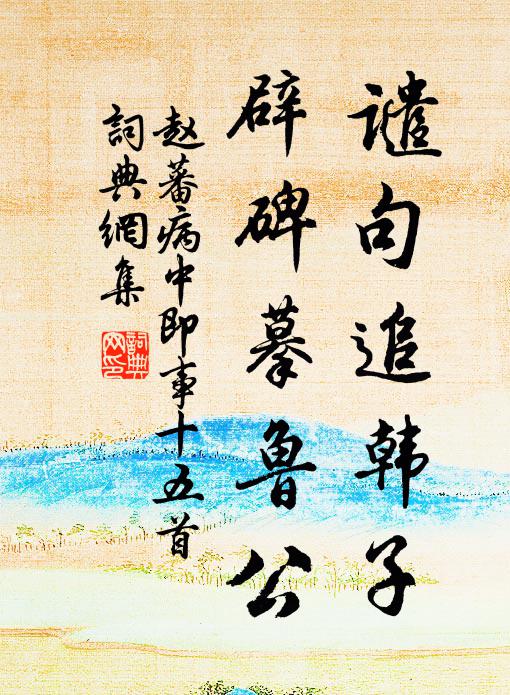 谴句追韩子
辟碑摹鲁公
赵蕃病中即事十五首
詞典網集
詞典网印